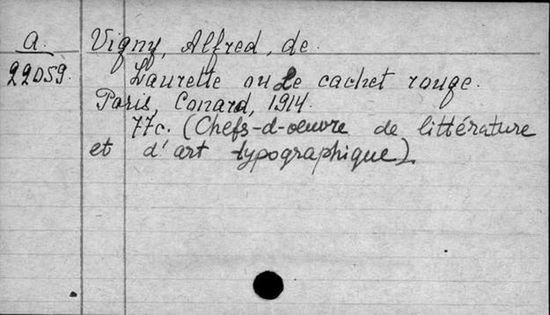 A. Vigny, Alfred, de.
22059. Laurette ou Le cachet rouge.
Paris, Conard, 1914.
77c. (Chefs-d-oeuvre de littérature
et d'art typographique).